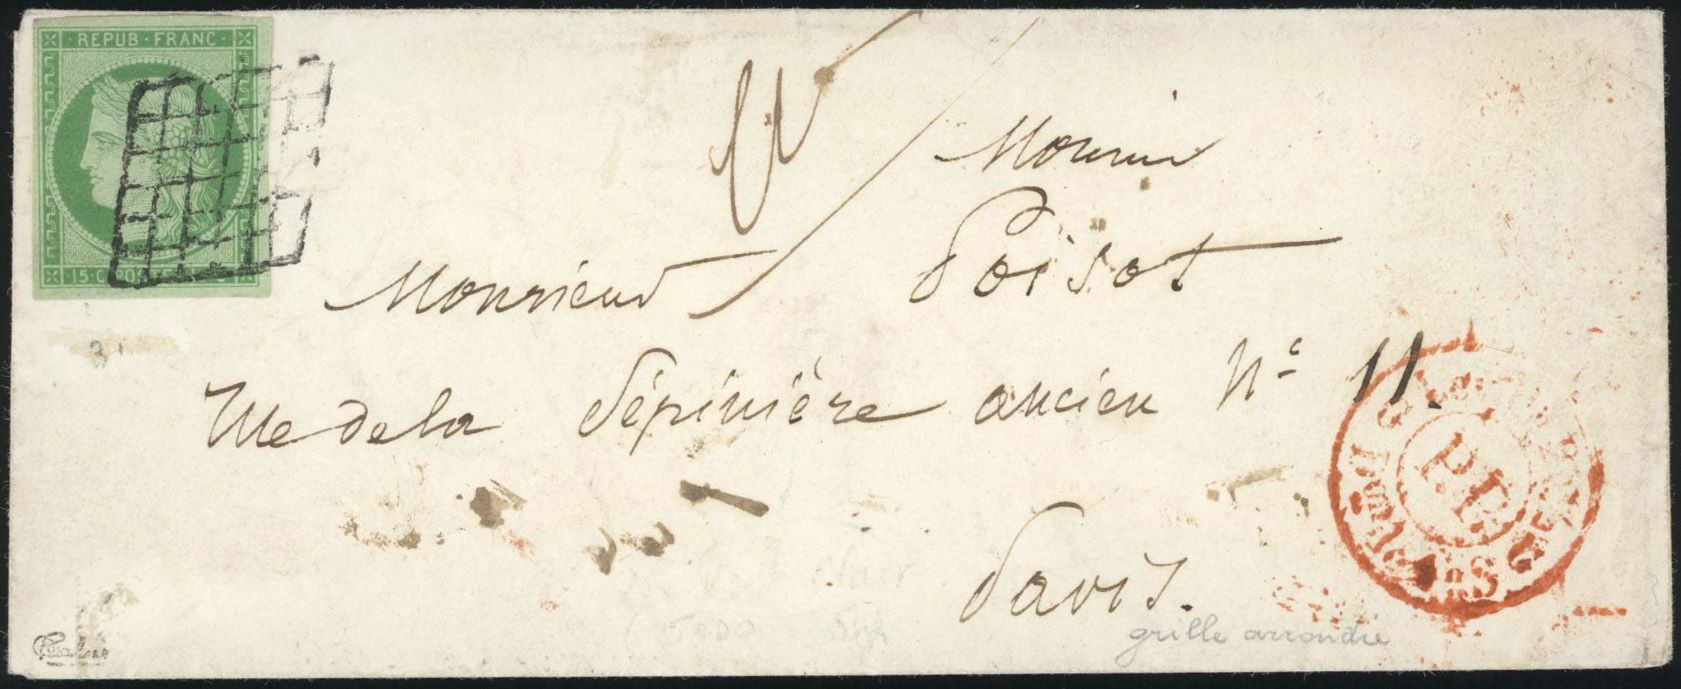 REPUB · FRANC ·
15 · C · POSTE
Monsieur
Monsieur Poisot
Rue de la Pépinière ancien N° 11.
Paris.
grille arrondie